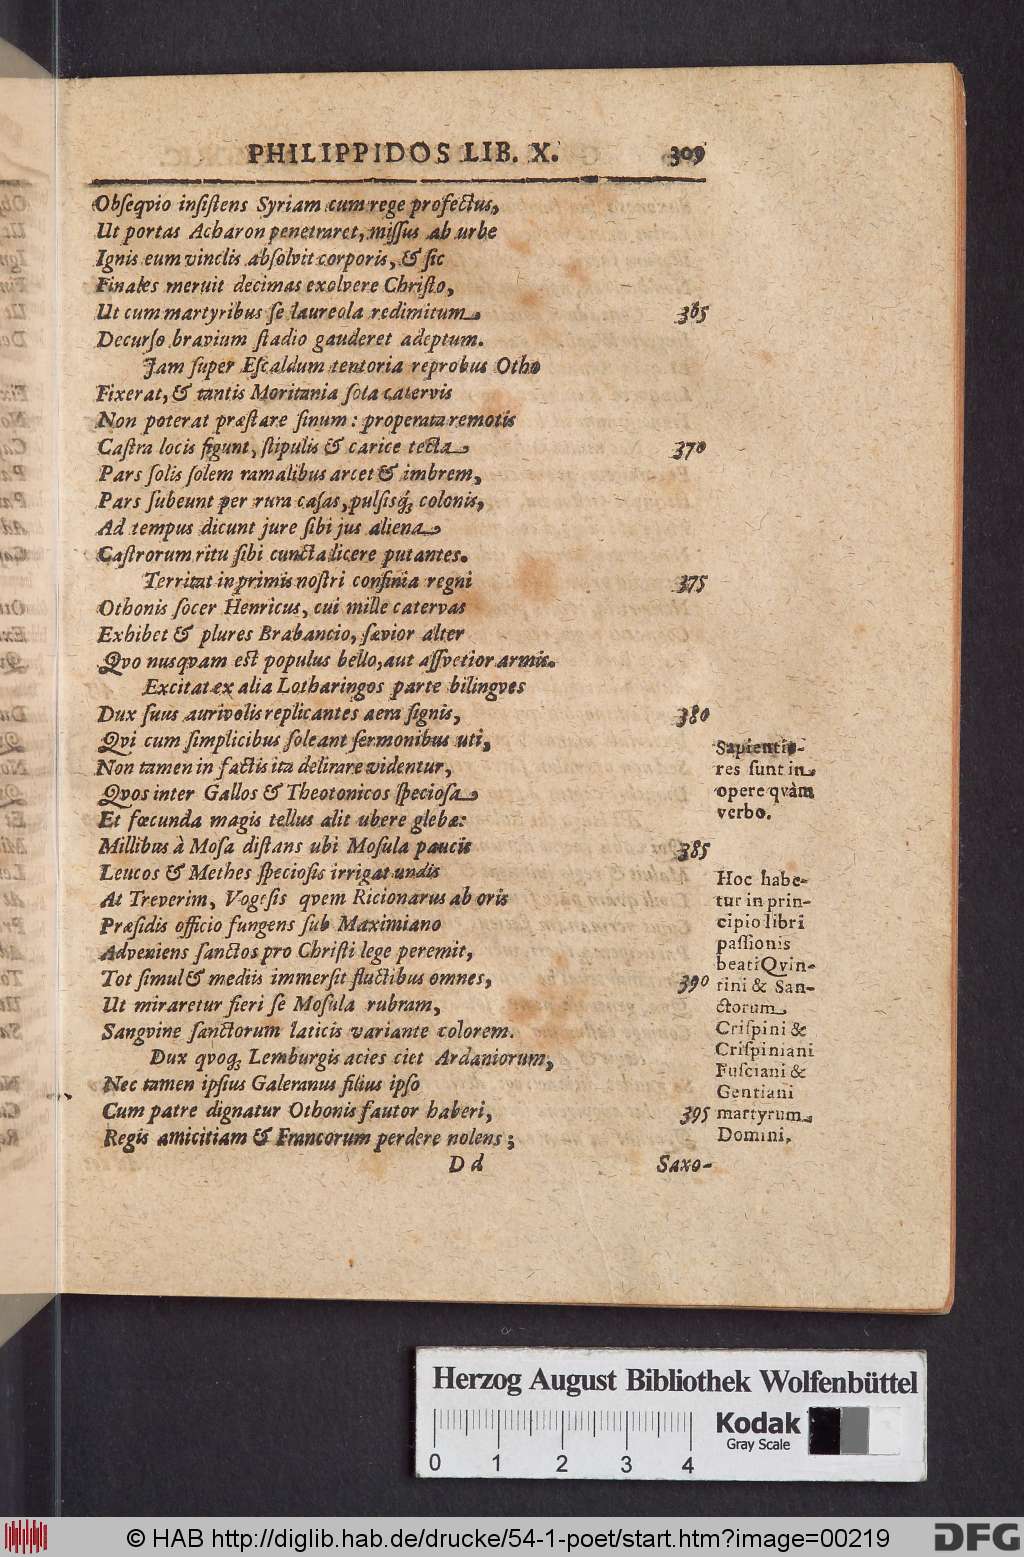 PHILIPPIDOS LIB. X. 309
Obſeqvio inſiſtens Syriam cum rege profectus,
Ut portas Acharon penetraret, miſſus ab urbe
Ignis eum vinclis abſolvit corporis, & ſic
Finales meruit decimas exolvere Chriſto,
Ut cum martyribus ſe laureola redimitum 365
Decurſo bravium ſtadio gauderet adeptum.
Jam ſuper Eſcaldum tentoria reprobus Otho
Fixerat, & tantis Moritania ſola catervis
Non poterat præſtare ſinum: properata remotis
Caſtra locis figunt, ſtipulis & carice tecta 370
Pars ſolis ſolem ramalibus arcet & imbrem,
Pars ſubeunt per rura caſas, pulſisq́; colonis,
Ad tempus dicunt jure ſibi jus aliena
Caſtrorum ritu ſibi cuncta licere putantes.
Territat in primis noſtri confinia regni 375
Othonis ſocer Henricus, cui mille catervas
Exhibet & plures Brabancio, ſævior alter
Qvo nusqvam eſt populus bello, aut aſſvetior armis.
Excitat ex alia Lotharingos parte bilingves
Dux ſuus aurivolis replicantes aera ſignis, 380
Qvi cum ſimplicibus ſoleant ſermonibus uti,
Non tamen in factis ita delirare videntur,
Qvos inter Gallos & Theotonicos ſpecioſa
Et fœcunda magis tellus alit ubere glebæ:
Millibus à Moſa diſtans ubi Moſula paucis 385
Leucos & Methes ſpecioſis irrigat undis
At Treverim, Vogeſis qvem Ricionarus ab oris
Præſidis officio fungens ſub Maximiano
Adveniens ſanctos pro Chriſti lege peremit,
Tot ſimul & mediis immerſit fluctibus omnes, 390
Ut miraretur fieri ſe Moſula rubram,
Sangvine ſanctorum laticis variante colorem.
Dux qvoq; Lemburgis acies ciet Ardaniorum,
Nec tamen ipſius Galeranus filius ipſo
Cum patre dignatur Othonis fautor haberi, 395
Regis amicitiam & Francorum perdere nolens;
D d Saxo-
Sapientio-
res ſunt in
opere qvàm
verbo.
Hoc habe-
tur in prin-
cipio libri
paſſionis
beati Qvin-
rini & San-
ctorum
Criſpini &
Criſpiniani
Fuſciani &
Gentiani
martyrum
Domini,
Herzog August Bibliothek Wolfenbüttel
0 1 2 3 4
Kodak
Gray Scale
© HAB http://diglib.hab.de/drucke/54-1-poet/start.htm?image=00219
DFG